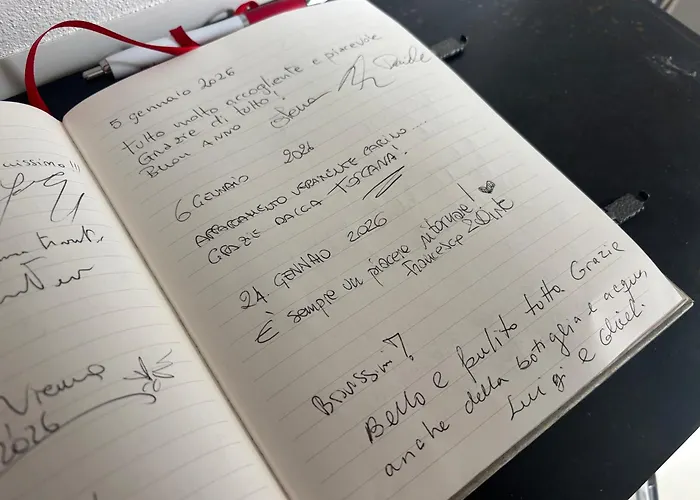 uissimo!!!
Vienna
2026
5 gennaio 2026
tutto molto accogliente e piacevole
Grazie di tutto!
Buon ANNO Elena Daniele
6 GENNAIO 2026
APPARTAMENTO VERAMENTE CARINO....
GRAZIE DALLA TOSCANA!
24 GENNAIO 2026
È sempre un piacere ritornare!
Francesca &
Bravissimi
Bello e pulito tutto. Grazie
anche della bottiglia e acqua,
Luigi e